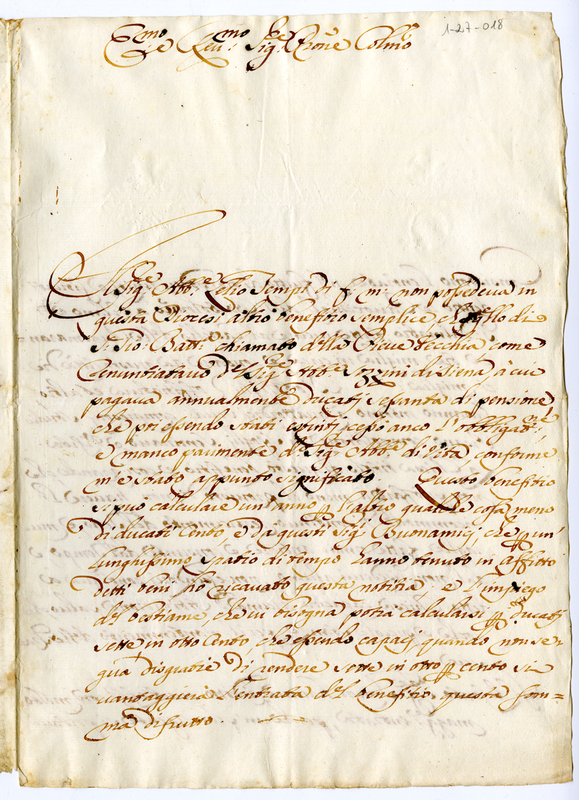 1-27-018
Em̃o e Reu.mo Sig.re P̃rone Colmo
Il Sig.re Abb.e Tempi di f. m. non possedeua in
questa Diocesi altro benefitio semplice che q̃llo di
S. Gio: Batt.a chiamato della Pieue Vecchia come
renuntiatario del Sig.re Abb.e di Siena à cui
pagaua annualmente Ducati sessanta di pensione
che poi essendo stati estinti cessò anco l'obbligaz.ne,
e mancò parimente d.o Sig.re Abb.e di Vita conforme
m'è stato appunto significato. Questo benefitio
si può calculare un'anno p l'altro qualche cosa meno
di ducati Cento, e da questi Sig.ri Buonamici, che p un
lunghissimo spatio di tempo hanno tenuto in Affitto
detti beni hò ricauato questa notitia, e l'impiego
del bestiame, che ui bisogna potrà calcularsi p Ducati
sette in otto Cento, che essendo capaci, quando non se=
gua disgratie di rendere sette in otto p cento si
uantaggierà l'entrata del benefitio, questa som=
ma di frutto.